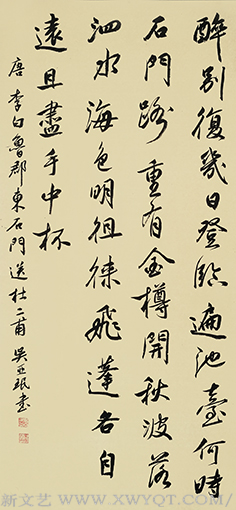 醉別復幾日登臨遍池臺何時
石門路重有金樽開秋波落
泗水海色明徂徠飛蓬各自
遠且盡手中杯
唐李白魯郡東石門送杜二甫 吳亞珉書
新文艺 WWW.XWYQT.COM/